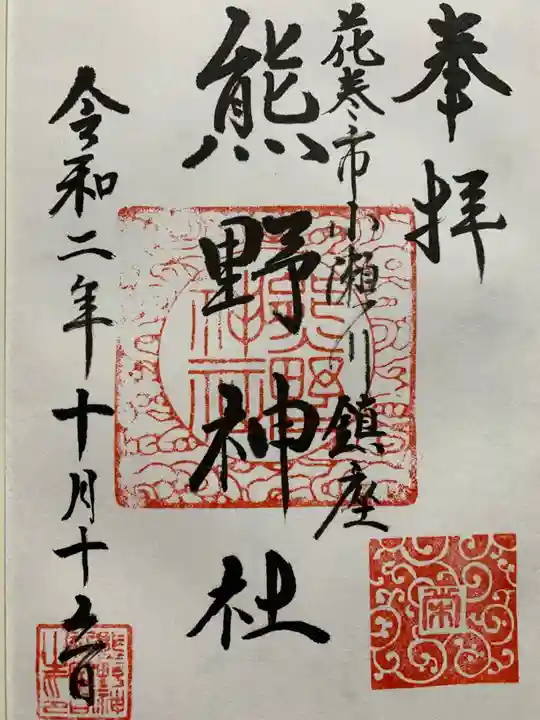 奉拝
花巻市小瀬川鎮座
熊野神社
令和二年十月十五日
熊野神社